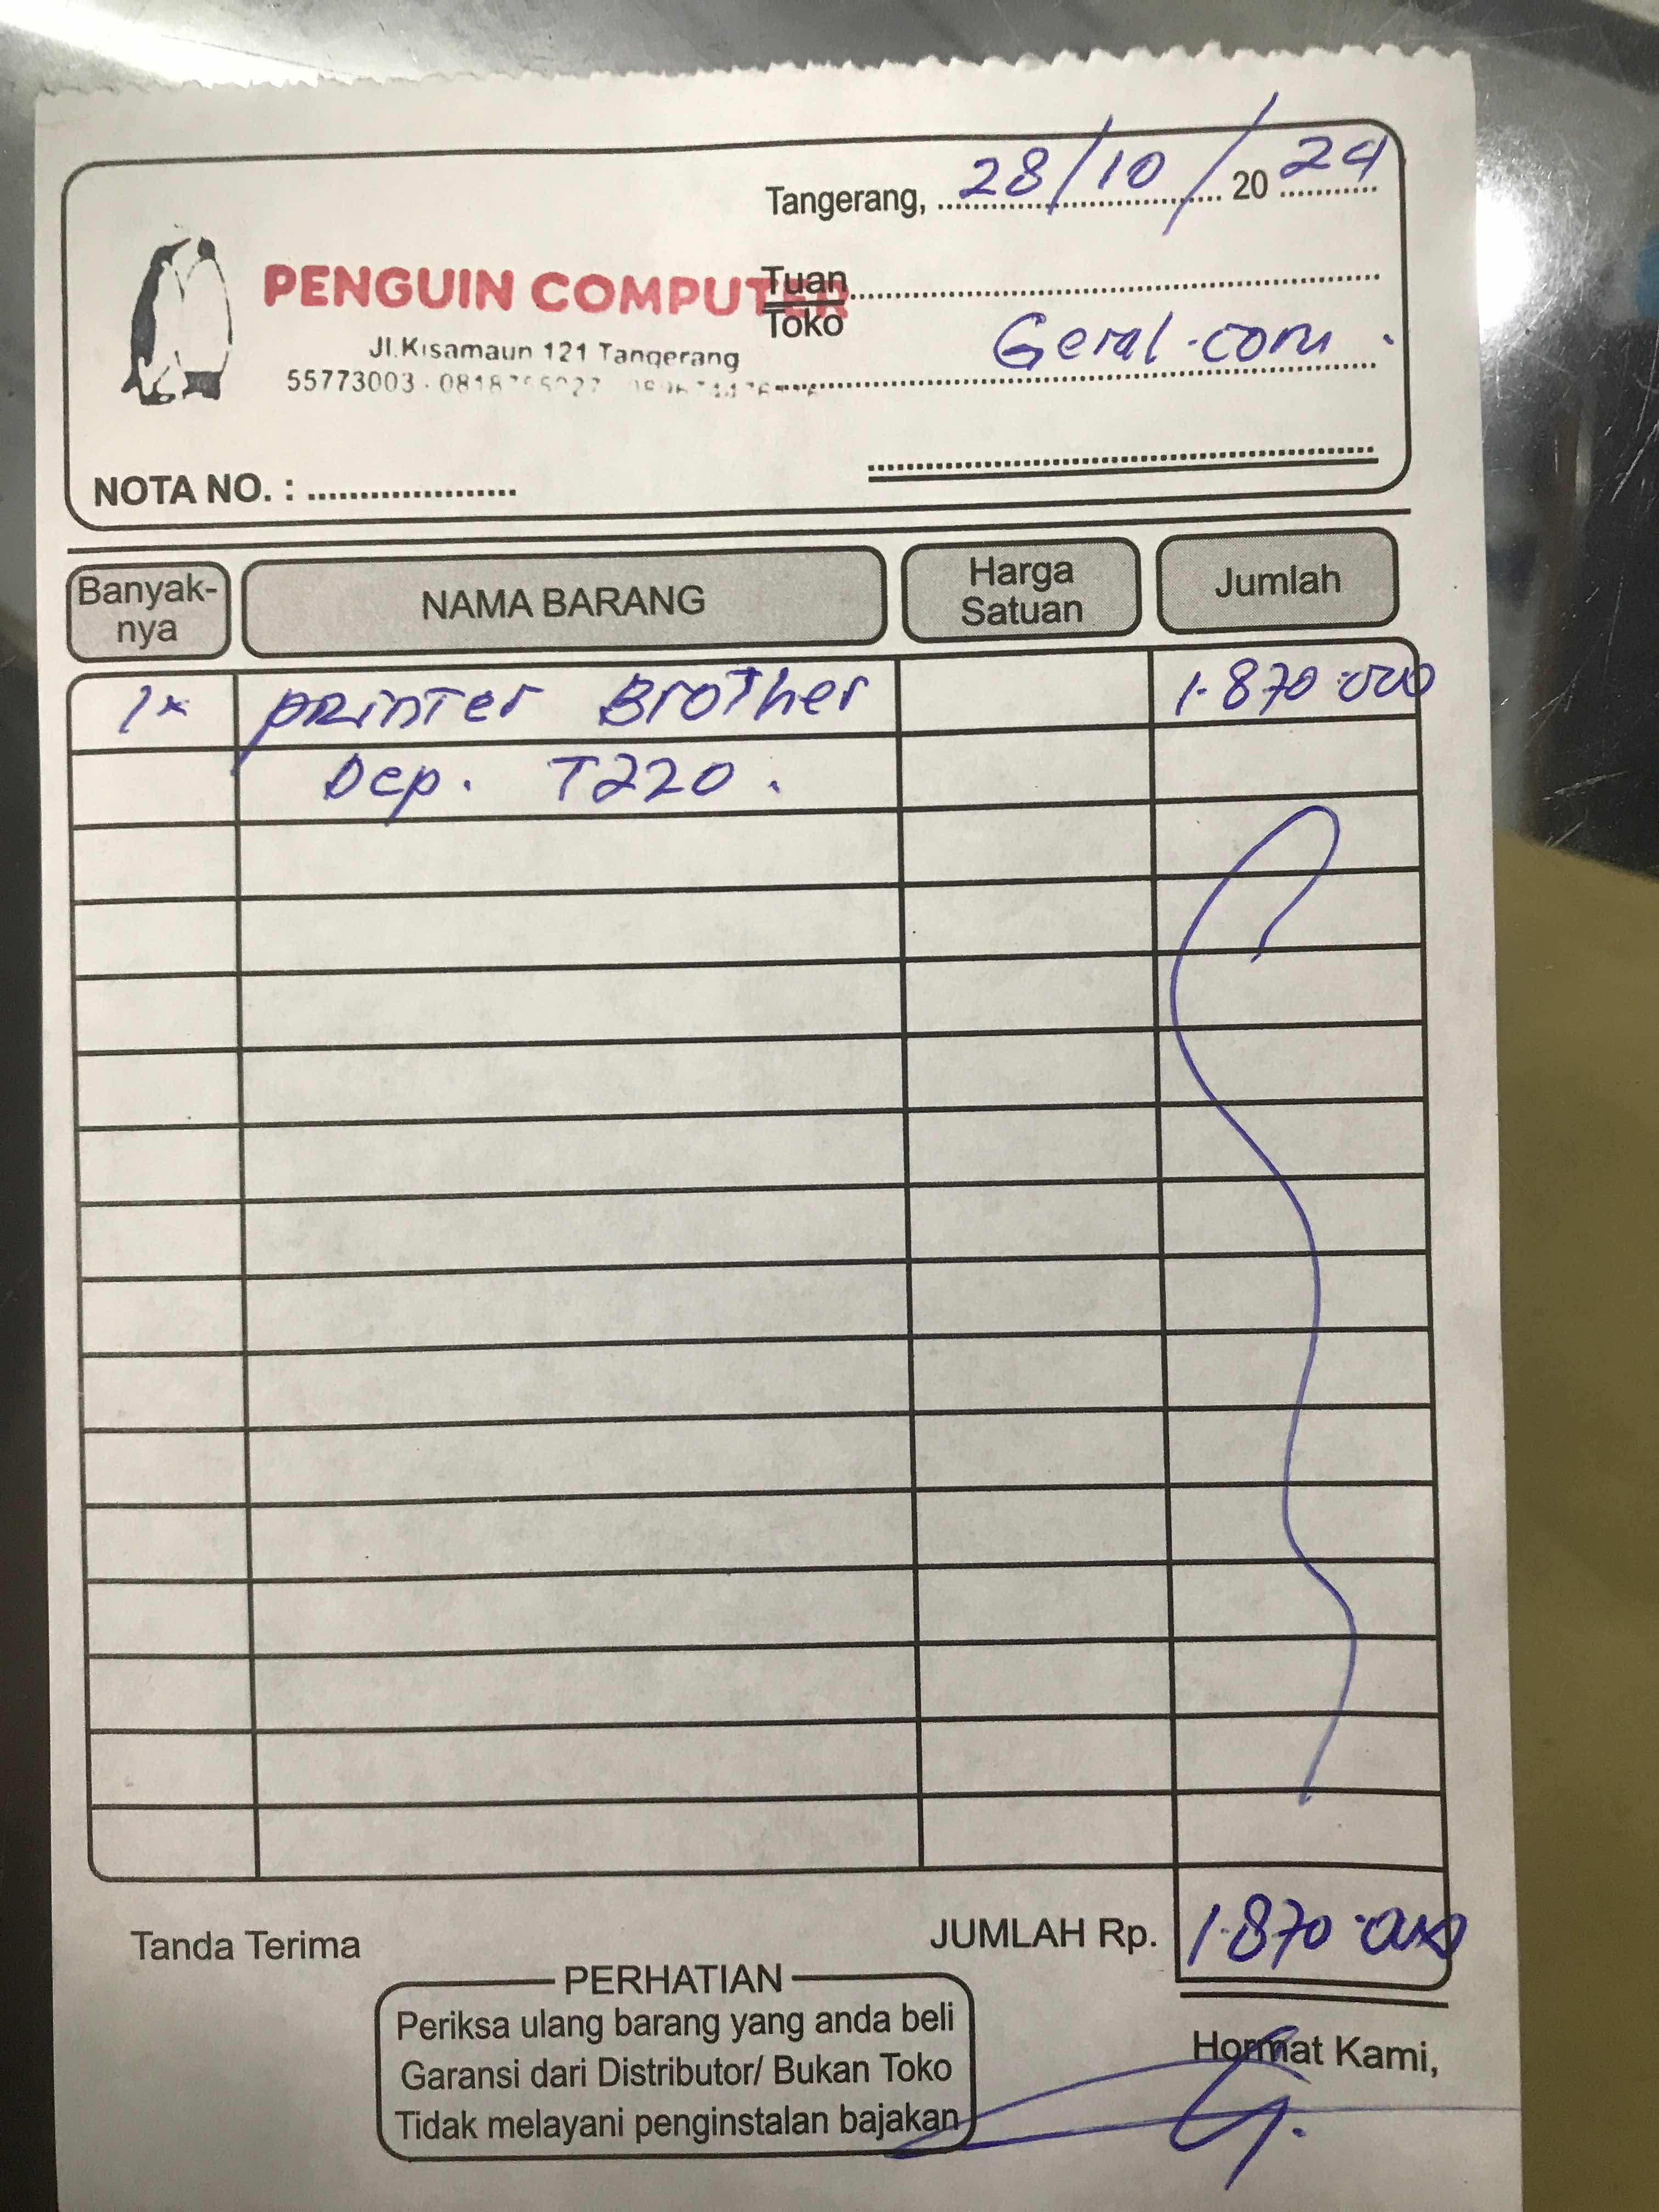 Tangerang, 28/10/2024
PENGUIN COMPUTER
Tuan
Toko
Geral.com.
Jl.Kisamaun 121 Tangerang
55773003
NOTA NO. :
Banyak-
nya
NAMA BARANG
Harga
Satuan
Jumlah
1x printer Brother 1.870.000
Dcp. T220.
Tanda Terima
JUMLAH Rp. 1.870.000
PERHATIAN
Periksa ulang barang yang anda beli
Garansi dari Distributor/ Bukan Toko
Tidak melayani penginstalan bajakan
Hormat Kami,